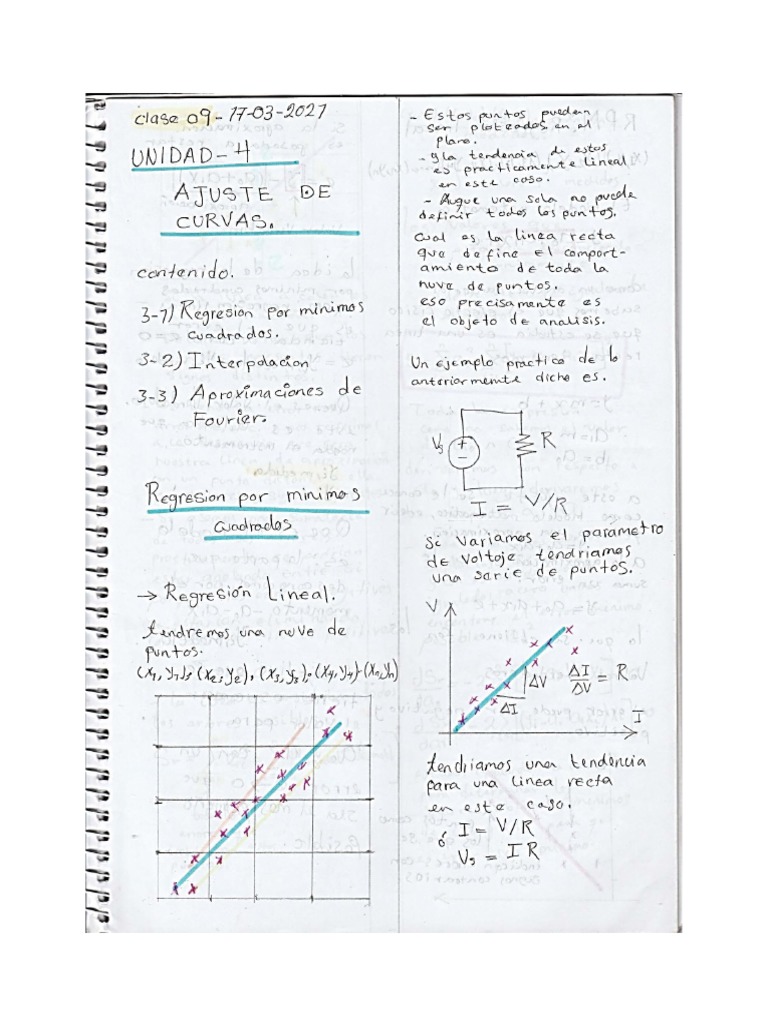 clase 09 - 17-03-2021
UNIDAD - 4
AJUSTE DE
CURVAS.
contenido.
3-1) Regresion por minimos
cuadrados.
3-2) Interpolacion
3-3) Aproximaciones de
Fourier.
Regresion por minimos
cuadrados
→ Regresión Lineal.
tendremos una nuve de
puntos.
(x1, y1), (x2, y2), (x3, y3), (x4, y4) - (xn, yn)
- Estos puntos pueden
ser ploteados en el
plano.
- y la tendencia de estos
es practicamente lineal
en este caso.
- Auque una sola no puede
definir todos los puntos.
Cual es la linea recta
que define el comport-
amiento de toda la
nuve de puntos.
eso precisamente es
el objeto de analisis.
Un ejemplo practico de lo
anteriormente dicho es.
Vs + - R
I = V/R
Si variamos el parametro
de voltaje tendriamos
una serie de puntos.
V
ΔV ΔI/ΔV = R
ΔI
I
tendriamos una tendencia
para una linea recta
en este caso.
I = V/R
ó
Vs = I R